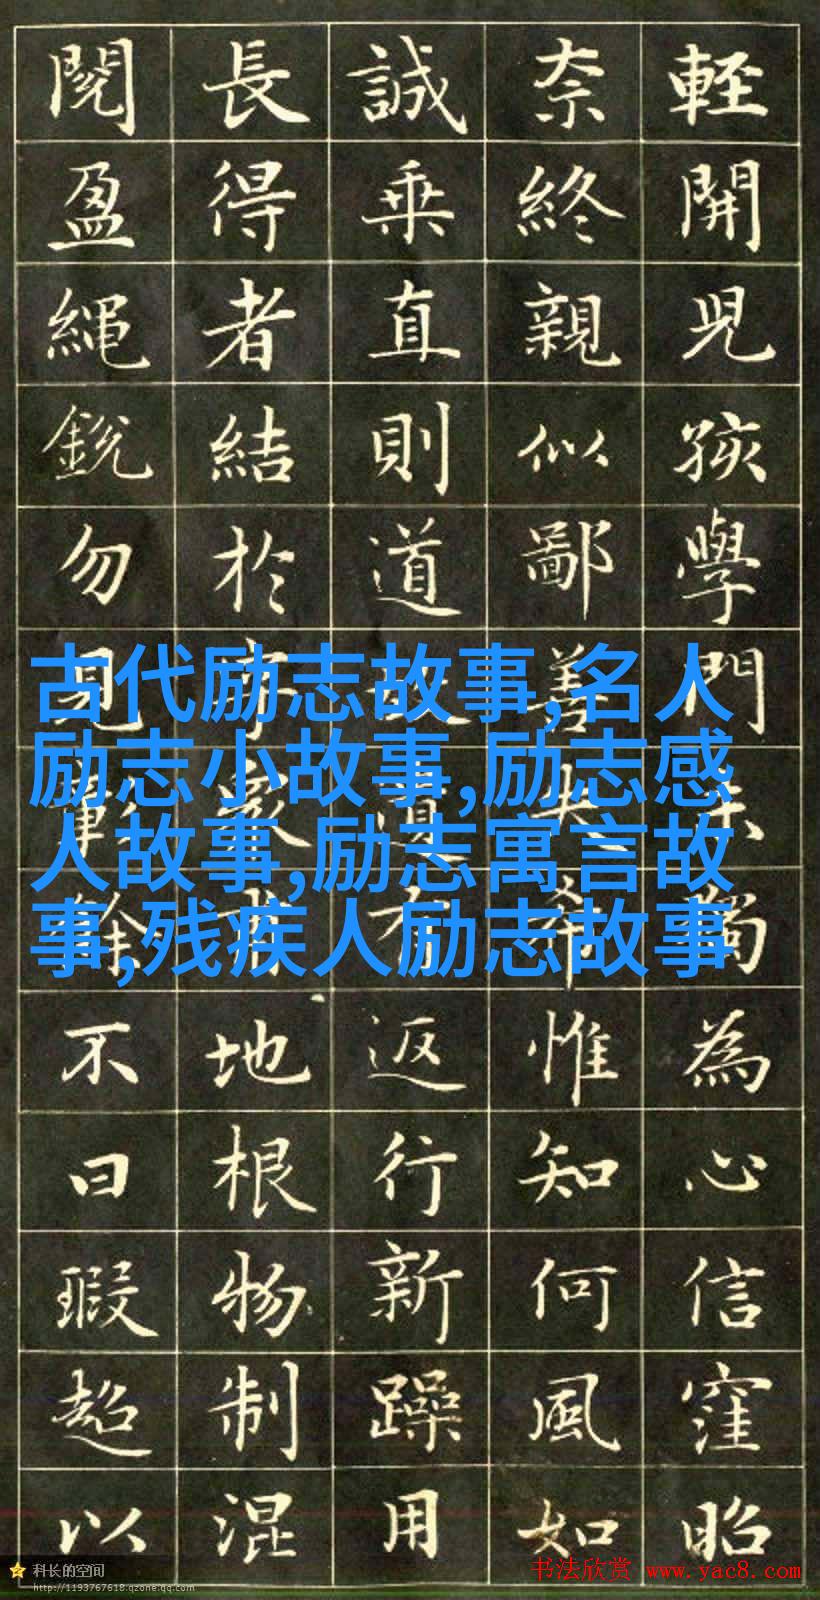 輕開兒孩學門獨為心信窪昭
奈終親似鄙善惟知何風如
誠乘直則道返行新躁用
長得者結於地根物制混
閱盈繩銳勿見餘不曰瑕超以
古代励志故事,名人
励志小故事,励志感
人故事,励志寓言故
事,残疾人励志故事
科长的空间
http://1193767618.qzone.qq.com
书法欣赏 www.yac8.com